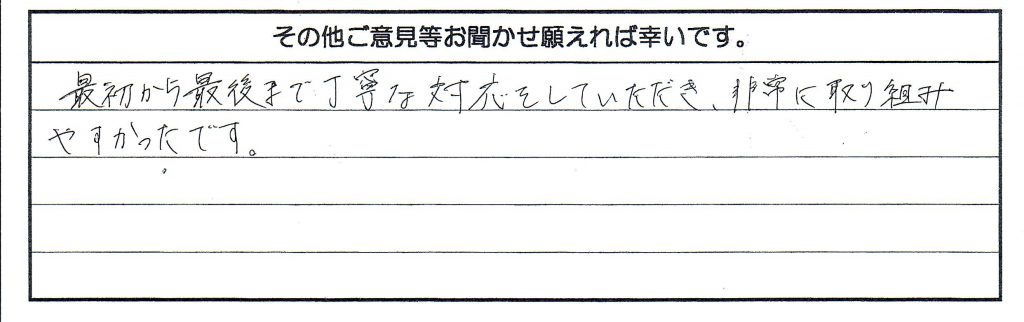 その他ご意見等お聞かせ願えれば幸いです。
最初から最後まで丁寧な対応をしていただき、非常に取り組み
やすかったです。